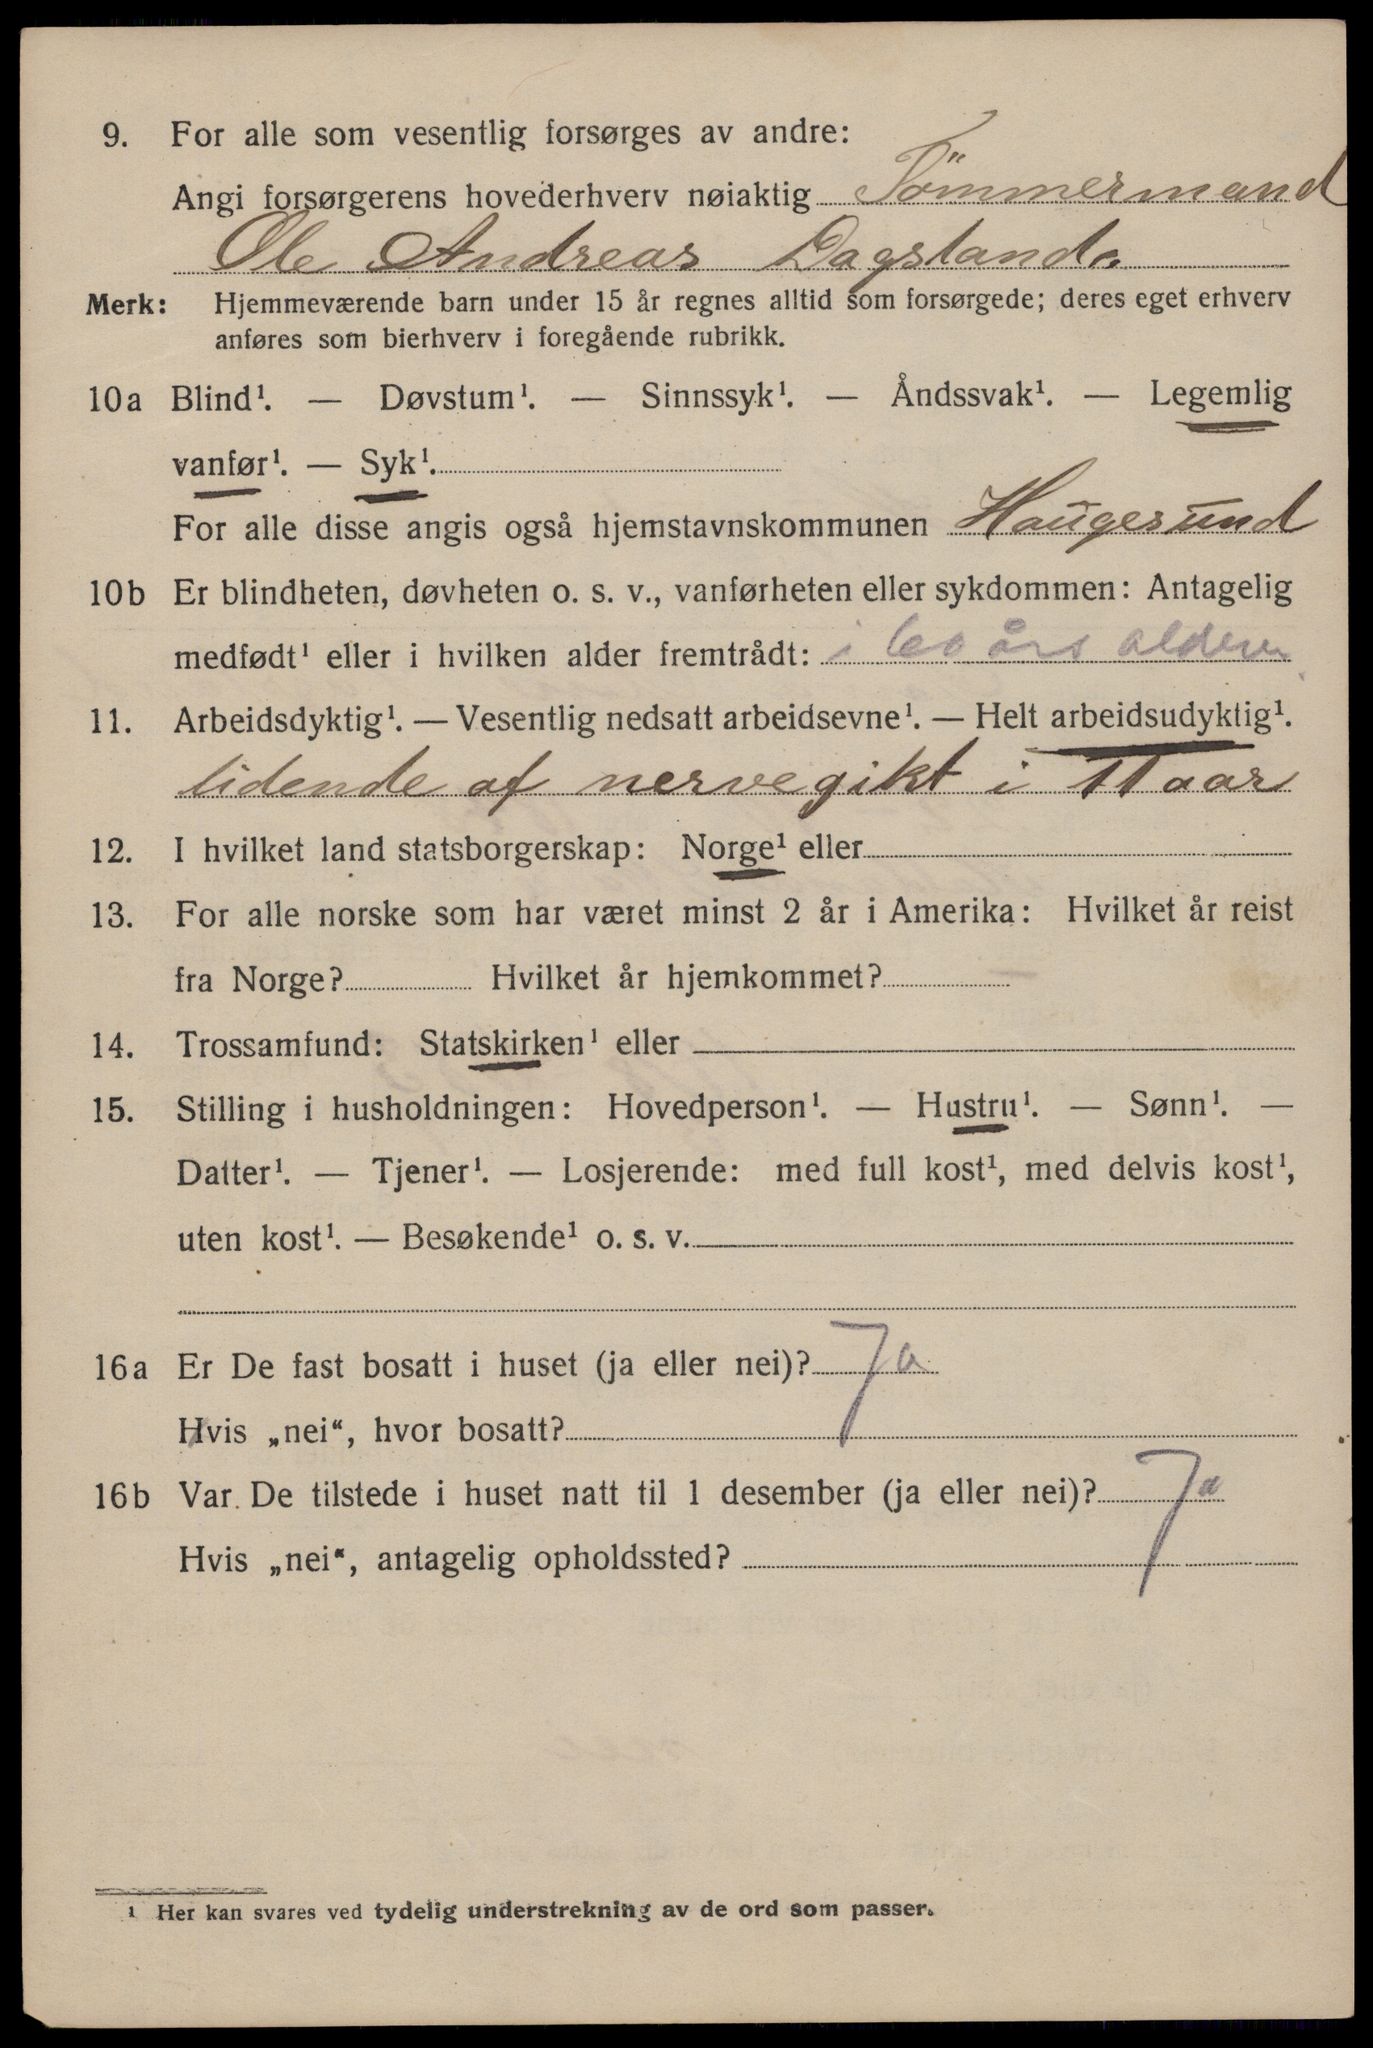 9. For alle som vesentlig forsørges av andre:
Angi forsørgerens hovederhverv nøiaktig Tömmermand
Ole Andreas Dagsland.
Merk: Hjemmeværende barn under 15 år regnes alltid som forsørgede; deres eget erhverv
anføres som bierhverv i foregående rubrikk.
10a Blind¹. — Døvstum¹. — Sinnssyk¹. — Åndssvak¹. — Legemlig
vanfør¹. — Syk¹.
For alle disse angis også hjemstavnskommunen Haugesund
10b Er blindheten, døvheten o. s. v., vanførheten eller sykdommen: Antagelig
medfødt¹ eller i hvilken alder fremtrådt: i 60 års alderen
11. Arbeidsdyktig¹. — Vesentlig nedsatt arbeidsevne¹. — Helt arbeidsudyktig¹.
lidende af nervegikt i 11 aar
12. I hvilket land statsborgerskap: Norge¹ eller
13. For alle norske som har været minst 2 år i Amerika: Hvilket år reist
fra Norge? Hvilket år hjemkommet?
14. Trossamfund: Statskirken¹ eller
15. Stilling i husholdningen: Hovedperson¹. — Hustru¹. — Sønn¹. —
Datter¹. — Tjener¹. — Losjerende: med full kost¹, med delvis kost¹,
uten kost¹. — Besøkende¹ o. s. v.
16a Er De fast bosatt i huset (ja eller nei)? Ja
Hvis „nei“, hvor bosatt?
16b Var De tilstede i huset natt til 1 desember (ja eller nei)? Ja
Hvis „nei“, antagelig opholdssted?
¹ Her kan svares ved tydelig understrekning av de ord som passer.